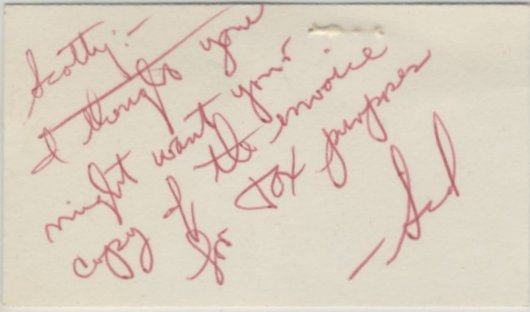 Scotty:-
I thought you
might want your
copy of the invoice
for tax purposes